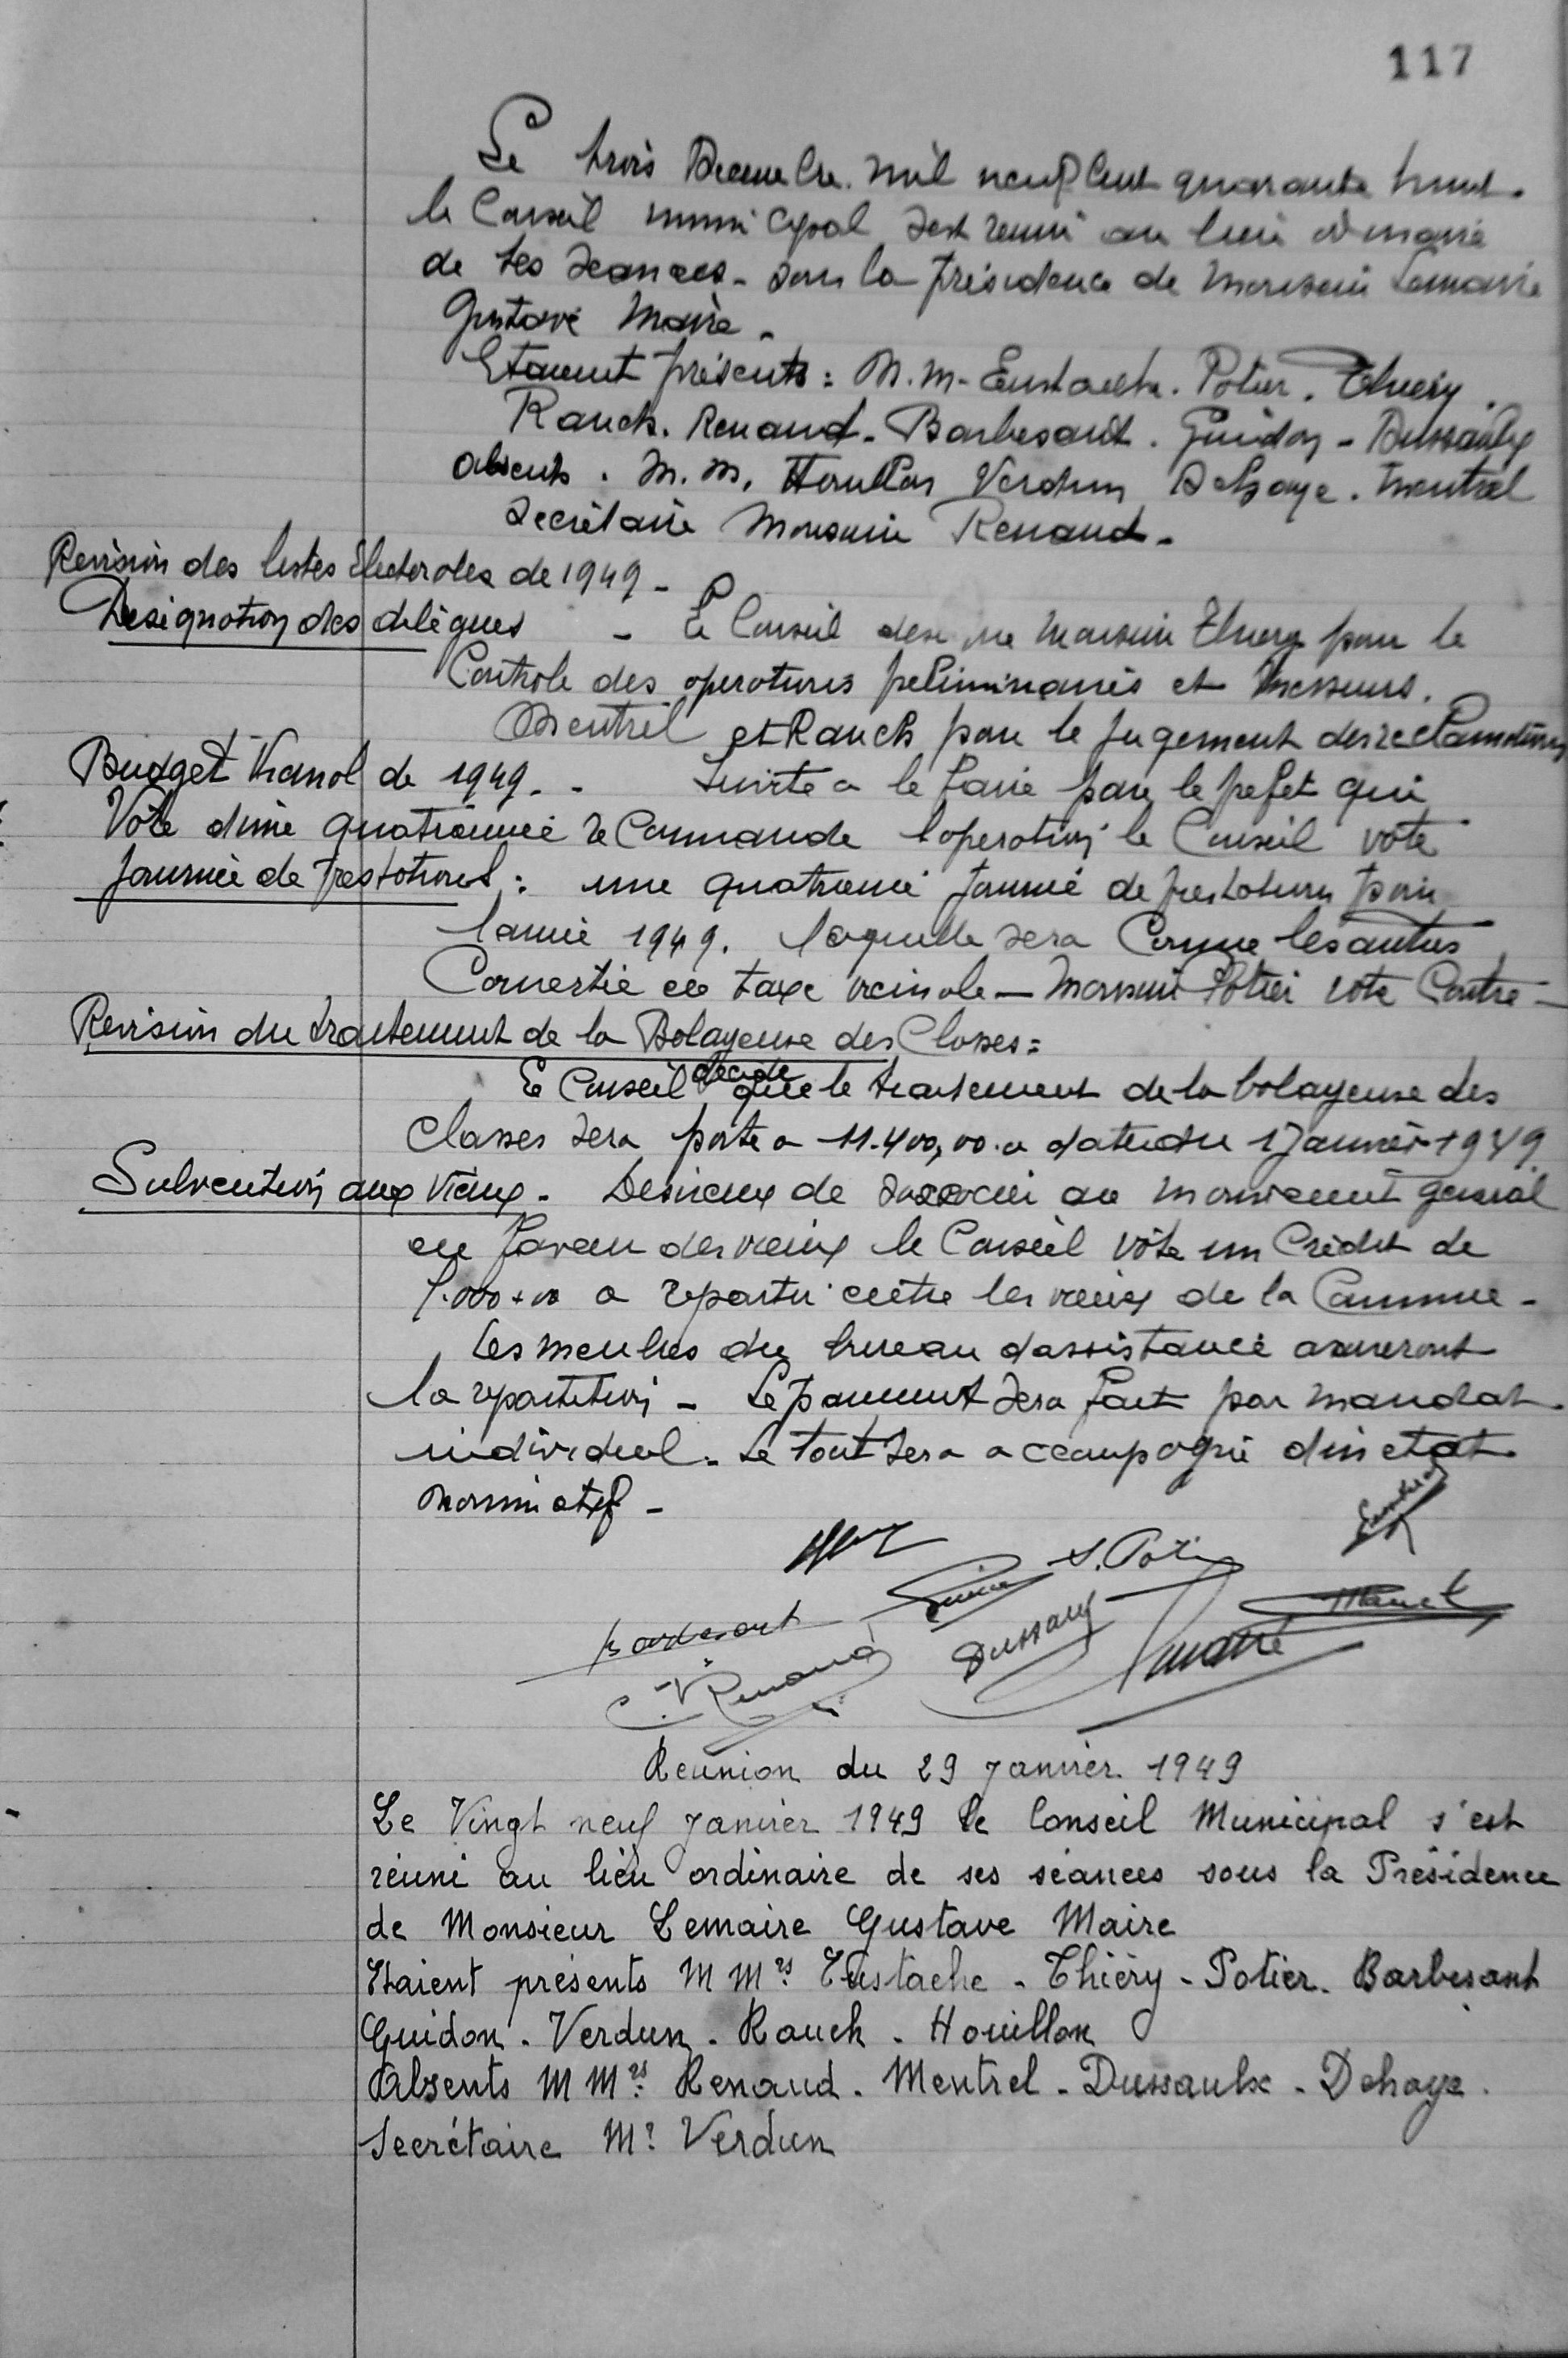 117
Le trois Decembre mil neuf cent quarante huit.
le Conseil municipal s'est reuni au lieu
de ses seances - sous la présidence de Monsieur Lemaire
Gustave Maire -
Etaient présents : M.M. Eustache. Potier. Thiery.
Rauch. Renaud - Barbesant. Guidon - Dussaulx
absents. M.M. Houillon Verdun Dehaye. Mentrel
Secrétaire Monsieur Renaud -
Revision des listes électorales de 1949 -
Designation des délégues - Le Conseil designe Monsieur Thiery pour le
Controle des operations preliminaires et Messieurs.
Mentrel et Rauch pour le jugement des reclamations
Budget Vicinal de 1949. - Invité a le faire par le prefet qui
Vote d'une quatrieme recommande l'operation le Conseil vote
Journée de Prestations : une quatrieme journée de prestations pour
l'année 1949. laquelle sera comme les autres
Convertie en taxe vicinale — Monsieur Potier vote Contre -
Revision du traitement de la Balayeuse des Classes :
decide
Le Conseil que le traitement de la balayeuse des
Classes sera porté a 11.400,00 a dater du 1 Janvier 1949.
Subvention aux Vieux - Desireux de s'associer au mouvement general
en faveur des vieux le Conseil vote un Crédit de
000,00 a repartir entre les vieux de la Commune -
Les membres du bureau d'assistance assureront
la repartition - Le paiement sera fait par mandat
individuel - Le tout sera accompagné d'un etat
nominatif -
S. Potier
Barbesant
Dussaulx
Lemaire
Renaud
Reunion du 29 Janvier 1949
Le Vingt neuf Janvier 1949 le Conseil Municipal s'est
réuni au lieu ordinaire de ses séances sous la Présidence
de Monsieur Lemaire Gustave Maire
Etaient présents M Mrs Eustache - Thiéry - Potier. Barbesant
Guidon. Verdun. Rauch. Houillon
Absents M Mrs Renaud. Mentrel - Dussaulx - Dehaye.
Secrétaire Mr Verdun